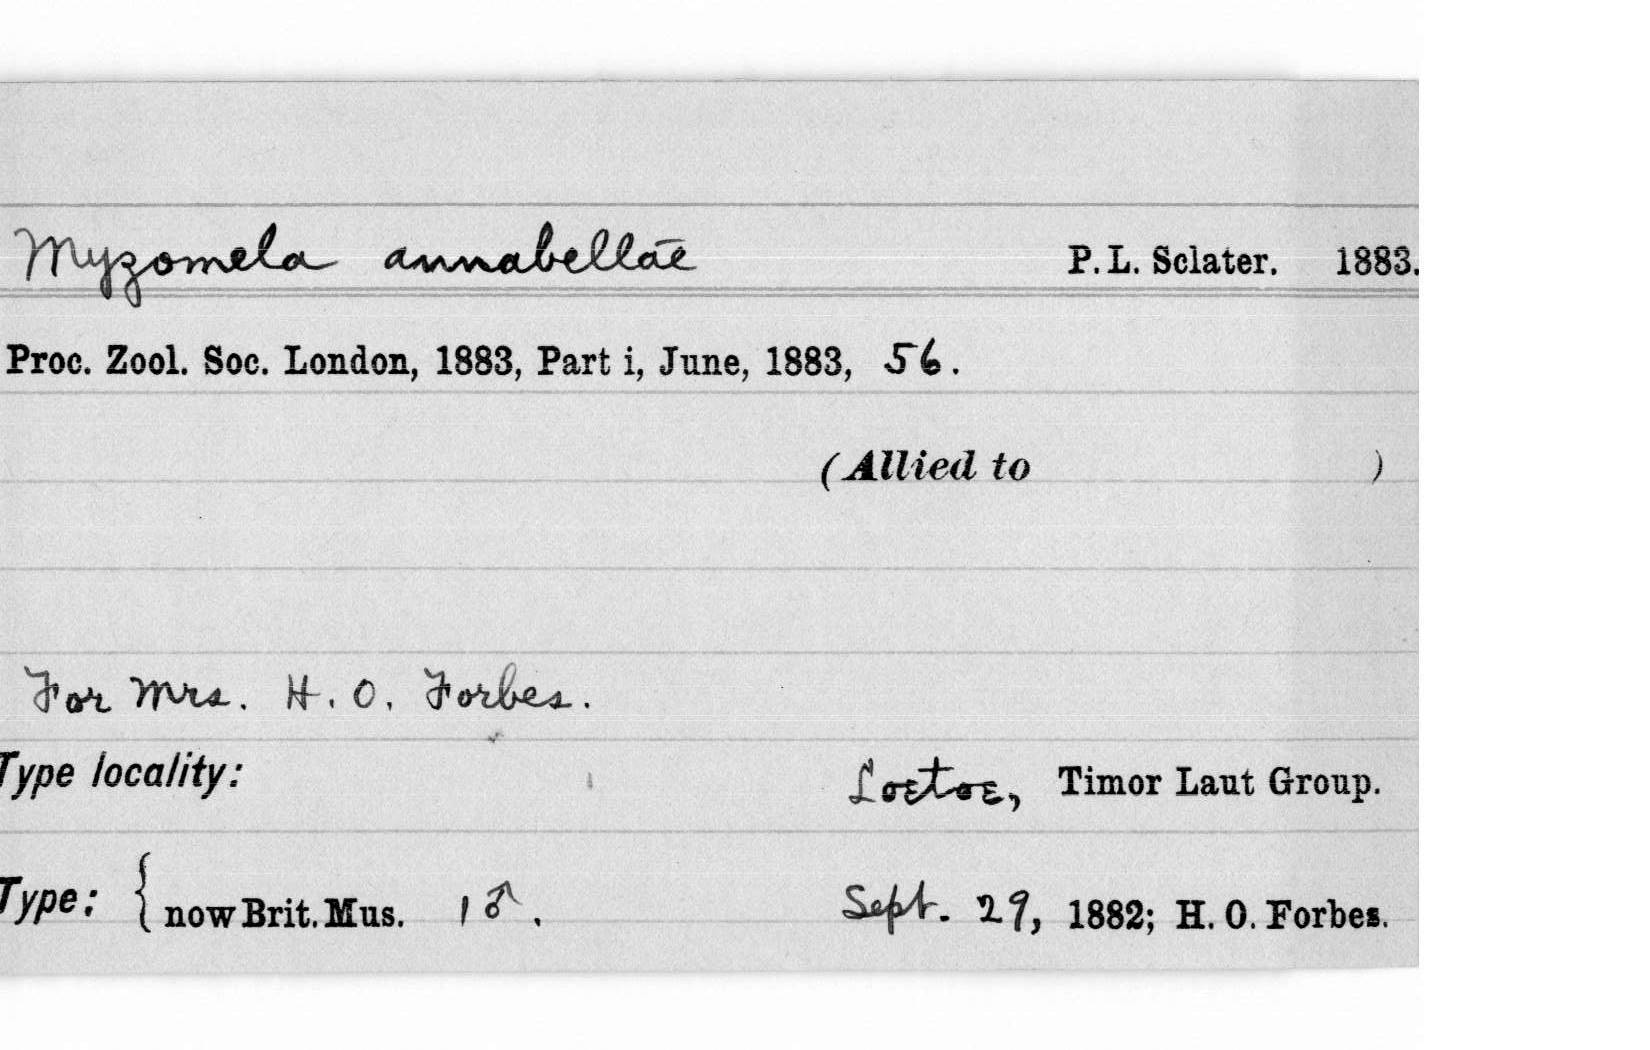 Myzomela annabellae P. L. Sclater. 1883.
Proc. Zool. Soc. London, 1883, Part i, June, 1883, 56.
(Allied to )
For Mrs. H. O. Forbes.
Type locality: Loetoe, Timor Laut Group.
Type: { now Brit. Mus. 1 ♂. Sept. 29, 1882; H. O. Forbes.